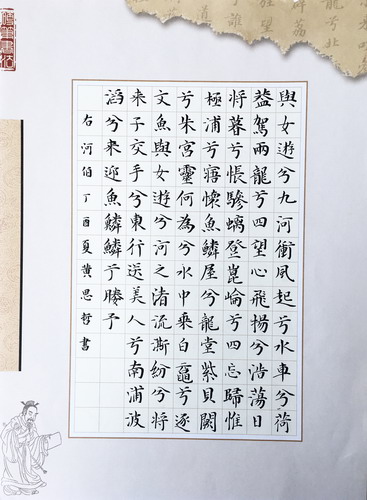 與女遊兮九河衝風起兮水車兮荷
葢駕兩龍兮四望心飛揚兮浩蕩日
將暮兮悵驂螭登崑崘兮四忘歸惟
極浦兮寤懷魚鱗屋兮龍堂紫貝闕
兮朱宮靈何為兮水中乘白黿兮逐
文魚與女遊兮河之渚流澌紛兮將
來子交手兮東行送美人兮南浦波
滔兮來迎魚鱗鱗兮媵予
右河伯丁酉夏黃思哲書